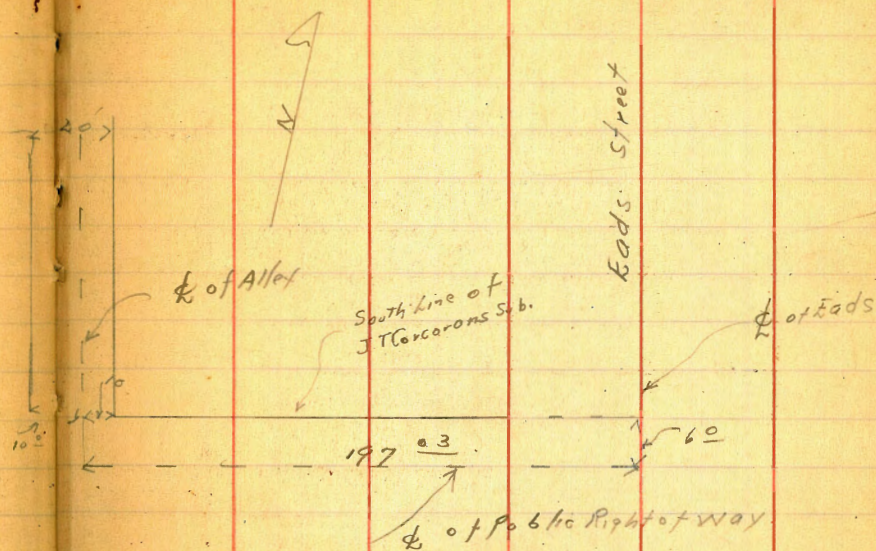 N
Eads Street
℄ of Alley
South Line of
J T Corcorans Sub.
℄ of Eads
6 0
197 03
℄ of Public Right of Way